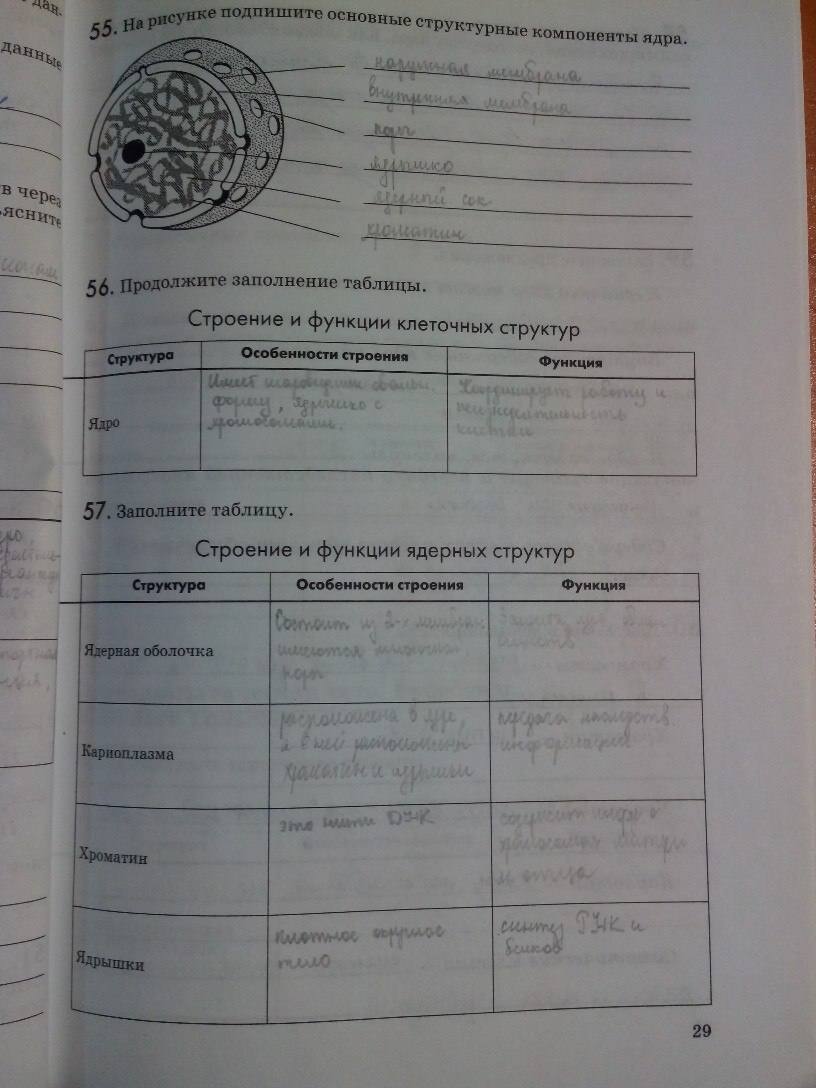 дан-
данные
в через
ъясните
55. На рисунке подпишите основные структурные компоненты ядра.
наружная мембрана
внутренняя мембрана
поры
ядрышко
ядерный сок
хроматин
56. Продолжите заполнение таблицы.
Строение и функции клеточных структур
Структура Особенности строения Функция
Ядро
Имеет шаровидную
форму, ядрышко с
хромосомами.
Координирует работу и
жизнедеятельность
клетки
57. Заполните таблицу.
Строение и функции ядерных структур
Структура Особенности строения Функция
Ядерная оболочка
Состоит из 2-х мембран,
имеются
поры
Кариоплазма
расположена в ядре,
а в ней расположены
хроматин и ядрышки
передача наследств.
информации
Хроматин
это нити ДНК
содержит инфу о
матери
и отца
Ядрышки
плотное округлое
тело
синтез РНК и
белков
29